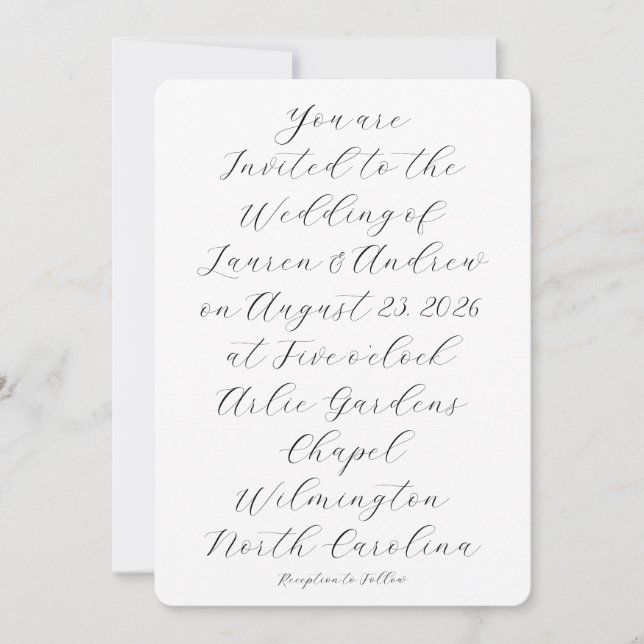 You are
Invited to the
Wedding of
Lauren & Andrew
on August 23, 2026
at Five o'clock
Arlie Gardens
Chapel
Wilmington
North Carolina
Reception to Follow